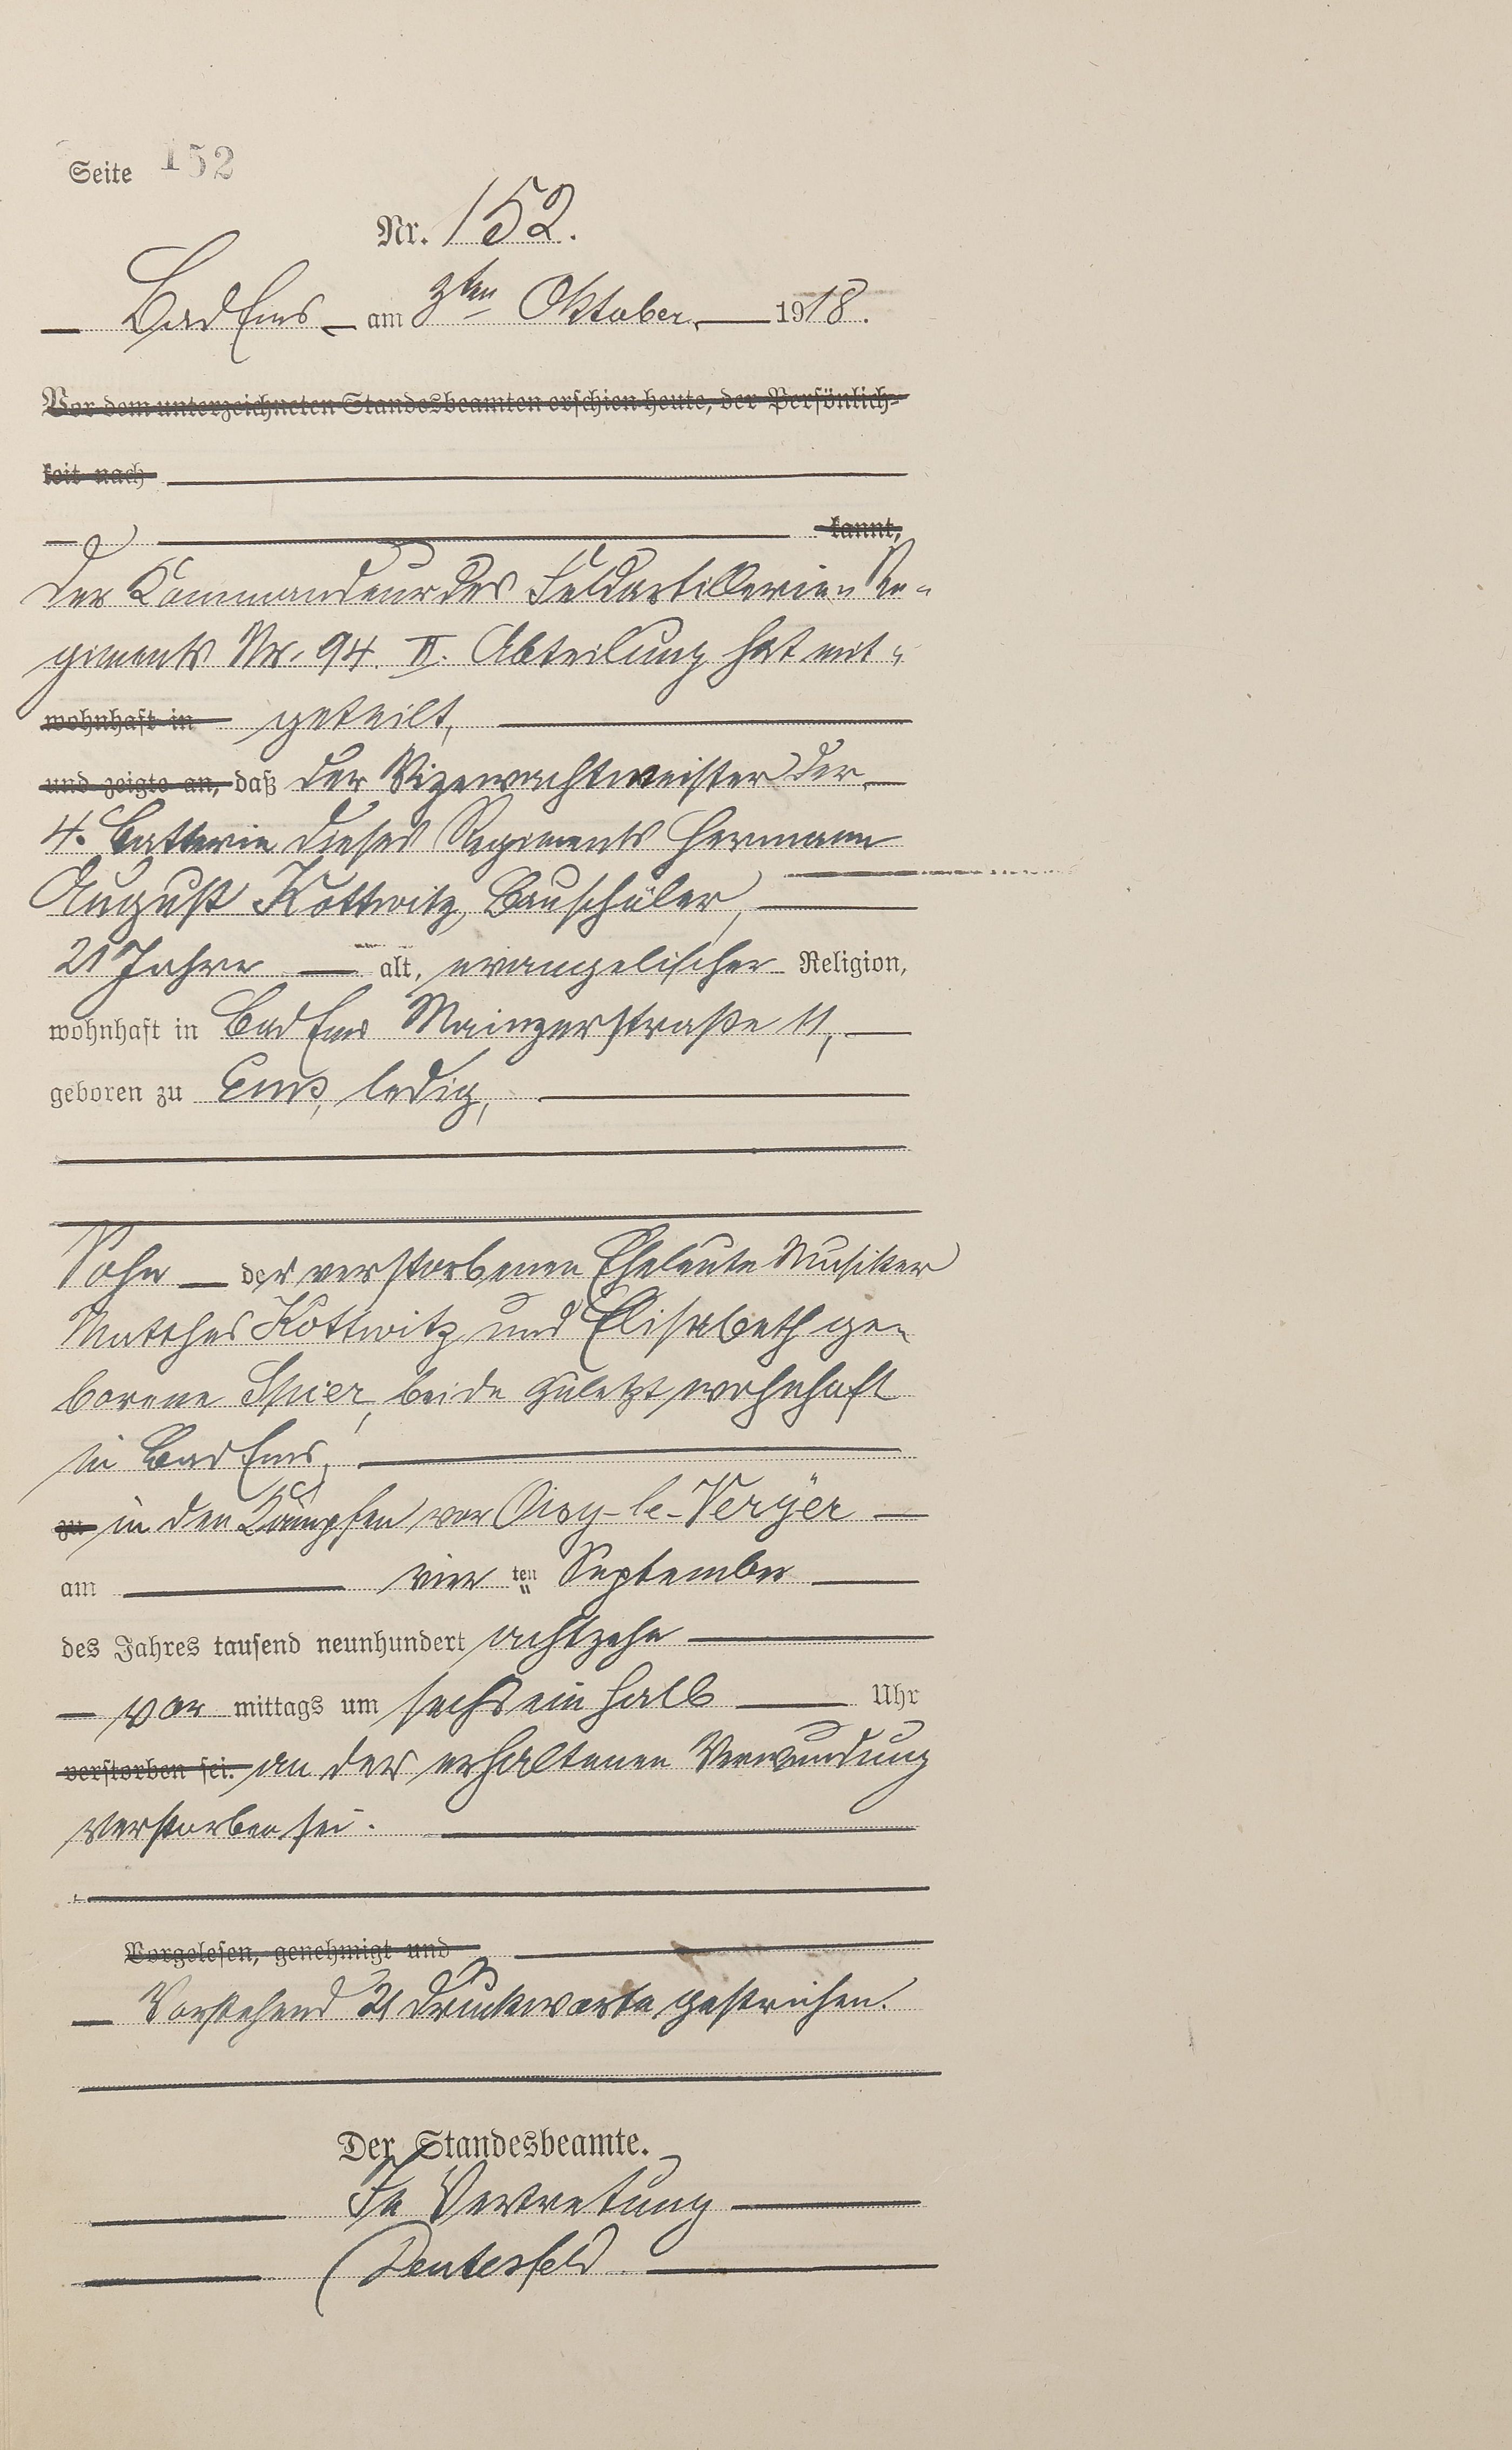 Seite 152
Nr. 152.
Bad Ems am 3ten Oktober 1918.
Vor dem unterzeichneten Standesbeamten erschien heute, der Persönlich-
keit nach
kannt,
Der Kommandeur des Feldartillerie-Re-
giments Nr. 94. II. Abteilung hat mit-
wohnhaft in geteilt,
und zeigte an, daß der Vizewachtmeister der
4. Batterie dieses Regiments Hermann
August Kottwitz, Bauschüler,
21 Jahre alt, evangelischer Religion,
wohnhaft in Bad Ems Mainzerstraße 11,
geboren zu Ems, ledig,
Sohn der verstorbenen Eheleute Musiker
Matthes Kottwitz und Elisabeth ge-
borene Spier, beide zuletzt wohnhaft
in Bad Ems,
zu in den Kämpfen vor Oisy-le-Verger
am vier ten September
des Jahres tausend neunhundert achtzehn
vor mittags um sechs ein halb Uhr
verstorben sei. an der erhaltenen Verwundung
verstorben sei.
Vorgelesen, genehmigt und
Vorstehend 21 Druckworte gestrichen.
Der Standesbeamte.
In Vertretung